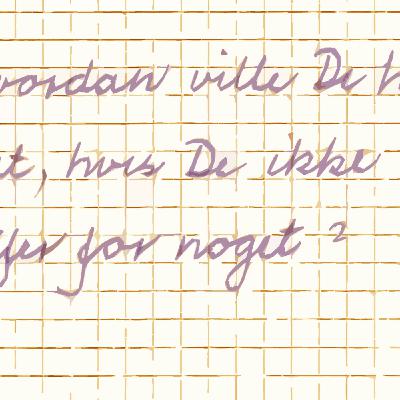 vordan ville De h
et, hvis De ikke
ffer for noget ?